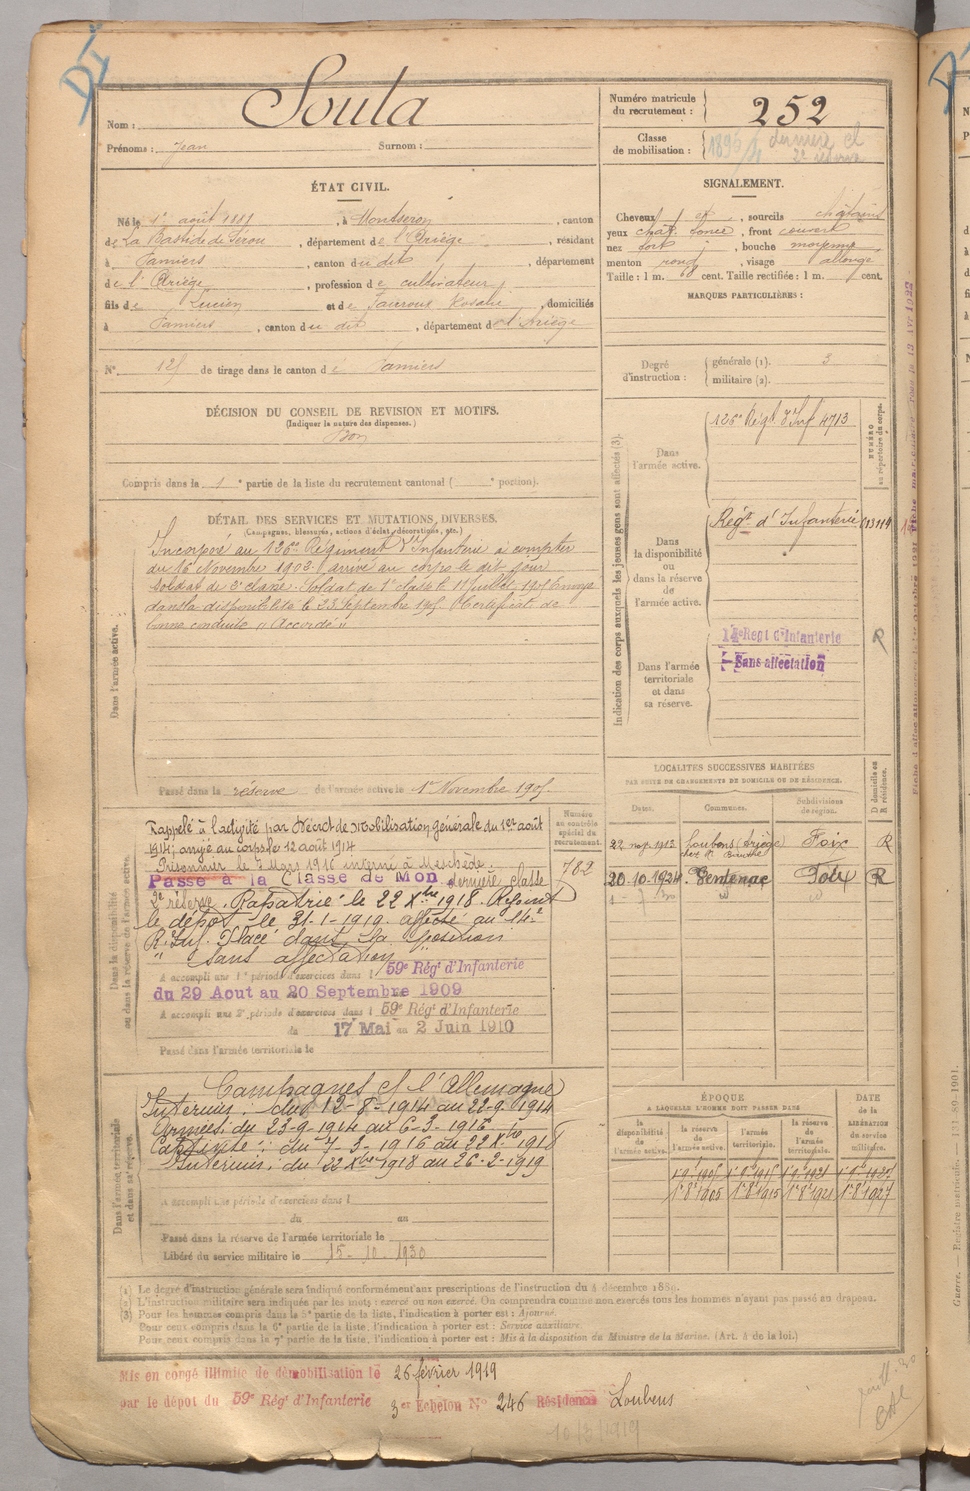 Nom : Soula
Prénoms : Jean Surnom :
Numéro matricule du recrutement : 252
Classe de mobilisation : 1896/4 dernière cl
2e réserve
ÉTAT CIVIL.
Né le 1er août 1881, à Montseron, canton
de La Bastide de Sérou, département de l'Ariège, résidant
à Pamiers, canton du dit, département
de l'Ariège, profession de cultivateur
fils de Lucien et de Rosalie, domiciliés
à Pamiers, canton du dit, département de l'Ariège
N° de tirage dans le canton de Pamiers
SIGNALEMENT.
Cheveux et, sourcils châtains
yeux chat. foncé, front couvert
nez fort, bouche moyenne,
menton rond, visage allongé
Taille : 1 m. 68 cent. Taille rectifiée : 1 m. cent.
MARQUES PARTICULIÈRES :
Degré d'instruction : générale (1). 3
militaire (2).
DÉCISION DU CONSEIL DE REVISION ET MOTIFS.
(Indiquer la nature des dispenses.)
Bon
Compris dans la 1e partie de la liste du recrutement cantonal ( e portion).
DÉTAIL DES SERVICES ET MUTATIONS DIVERSES.
(Campagnes, blessures, actions d'éclat, décorations, etc.)
Dans l'armée active.
Incorporé au 126e Régiment d'Infanterie à compter
du 16 Novembre 1902. arrivé au corps le dit jour
soldat de 2e classe. Soldat de 1e classe le 11 juillet 1905 Envoyé
dans la disponibilité le 23 Septembre 1905. Certificat de
bonne conduite « Accordé »
Passé dans la réserve de l'armée active le 1er Novembre 1905.
Indication des corps auxquels les jeunes gens sont affectés (3).
NUMÉRO au répertoire du corps.
Dans l'armée active.
126e Régt d'Inf 4713
Dans la disponibilité ou dans la réserve de l'armée active.
Régt d'Infanterie
Dans l'armée territoriale et dans sa réserve.
14e Regt d'Infanterie
Sans affectation
R
Dans la disponibilité ou dans la réserve de l'armée active.
Numéro au contrôle spécial du recrutement.
782
Rappelé à l'activité par Décret de Mobilisation générale du 1er août
1914; arrivé au corps le 12 août 1914
Prisonnier le 7 Mars 1916 interné à Meschède.
Passé à la Classe de Mon dernière classe
2e réserve. Rapatrié le 22 Xbre 1918. Rejoint
le dépôt le 31-1-1919. affecté au 14e
R. Inf. Placé dans la position
" sans affectation "
A accompli une 1e période d'exercices dans l 59e Régt d'Infanterie
du 29 Aout au 20 Septembre 1909
A accompli une 2e période d'exercices dans l 59e Régt d'Infanterie
du 17 Mai au 2 Juin 1910
Passé dans l'armée territoriale le
LOCALITÉS SUCCESSIVES HABITÉES
PAR SUITE DE CHANGEMENTS DE DOMICILE OU DE RÉSIDENCE.
Dates. Communes. Subdivisions de région. D domicile ou R résidence.
1913 Loubens (Ariège) Foix R
20.10.1924 Ventenac Foix R
Dans l'armée territoriale et dans sa réserve.
Campagnes ct l'Allemagne
Intérieur : du 12-8-1914 au 22-9-1914
Armées : du 23-9-1914 au 6-3-1916
Captivité : du 7-3-1916 au 22 Xbre 1918
Intérieur : du 22 Xbre 1918 au 26-2-1919
A accompli une période d'exercices dans l
du au
Passé dans la réserve de l'armée territoriale le
Libéré du service militaire le 15-10-1930
ÉPOQUE
A LAQUELLE L'HOMME DOIT PASSER DANS
DATE de la LIBÉRATION du service militaire.
la disponibilité de l'armée active. la réserve de l'armée active. l'armée territoriale. la réserve de l'armée territoriale.
1er 8 1905 1er 8 1915 1er 8 1921 1er 8 1927
(1) Le degré d'instruction générale sera indiqué conformément aux prescriptions de l'instruction du 4 décembre 1889.
(2) L'instruction militaire sera indiquée par les mots : exercé ou non exercé. On comprendra comme non exercés tous les hommes n'ayant pas passé au drapeau.
(3) Pour les hommes compris dans la 5e partie de la liste, l'indication à porter est : Ajourné.
Pour ceux compris dans la 6e partie de la liste, l'indication à porter est : Service auxiliaire.
Pour ceux compris dans la 7e partie de la liste, l'indication à porter est : Mis à la disposition du Ministre de la Marine. (Art. 4 de la loi.)
Mis en congé illimité de démobilisation le 26 février 1919
par le dépôt du 59e Régt d'Infanterie 3er Echelon N° 246 Résidence Loubens
10/3/1919
Guerre. — Registre matricule. — 1131-89-1901.